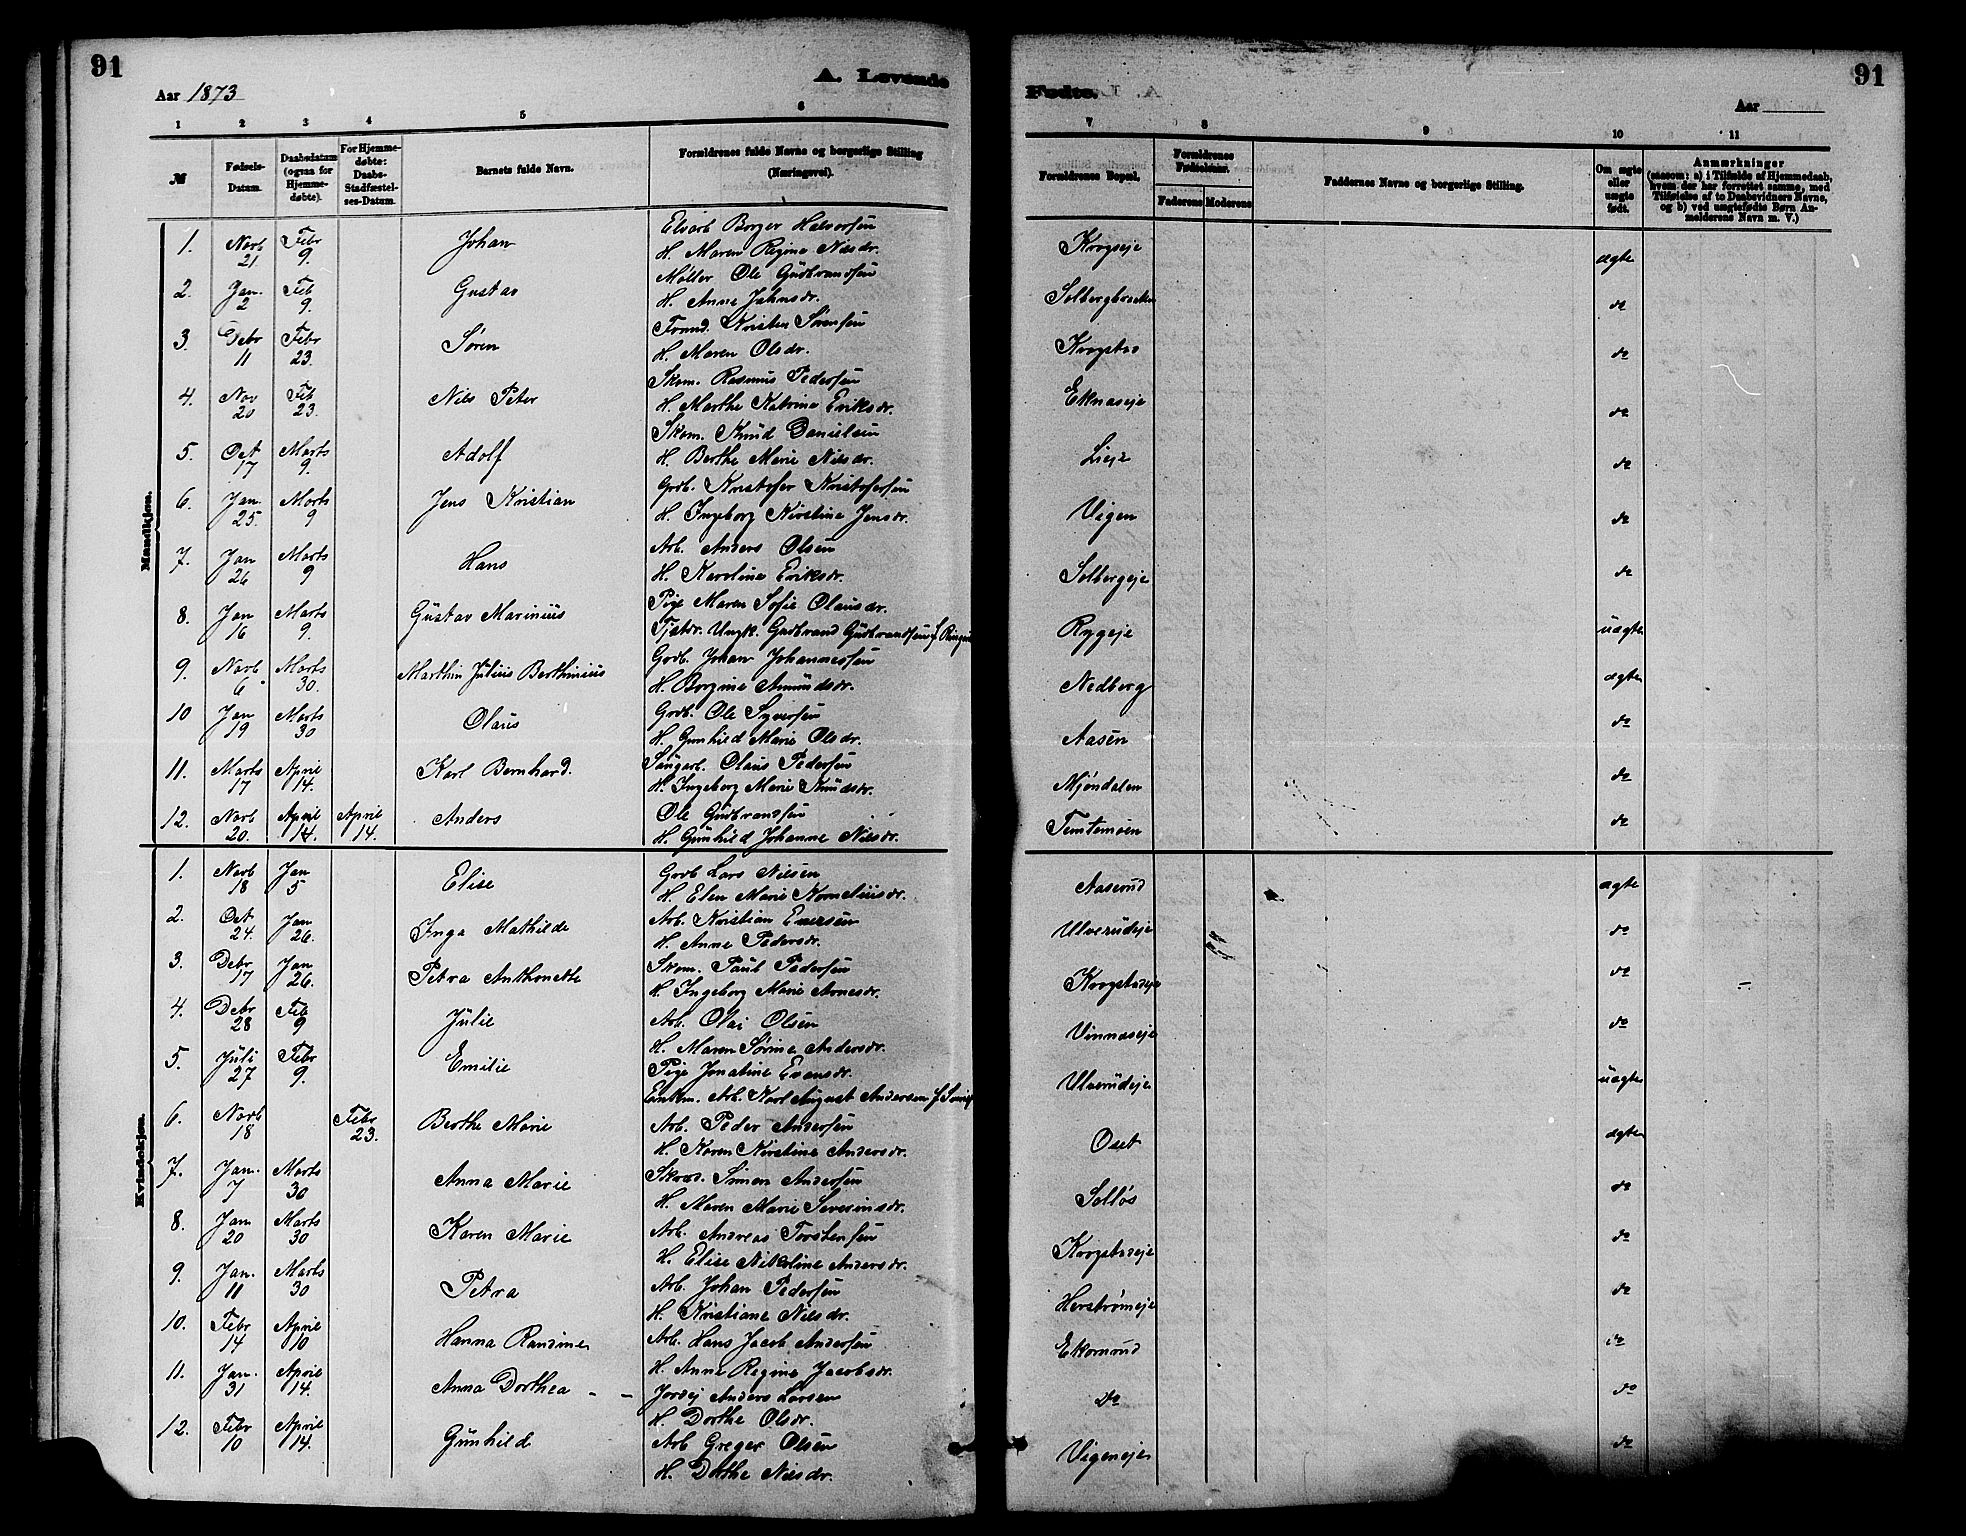 91
A. Levende
Fødte.
91
Aar 1873
Aar
1 2 3 4 5 6 7 8 9 10 11
№
Fødsels-Datum.
Daabsdatum (ogsaa for Hjemmedøbte).
For Hjemmedøbte: Daabs-Stadfæstelses-Datum.
Barnets fulde Navn.
Forældrenes fulde Navne og borgerlige Stilling (Næringsvei).
Forældrenes Bopæl.
Forældrenes Fødselsaar.
Faderens Moderens
Faddernes Navne og borgerlige Stilling.
Om ægte eller uægte født.
Anmærkninger (saasom: a) i Tilfælde af Hjemmedaab, hvem der har forrettet samme, med Tilføielse af to Daabsvidners Navne, og b) ved uægtefødte Børn Anmelderens Navn m. V.)
Mandkjøn.
1. Novb 21. Febr 9. Johan Elvarb Borger Halvorsen Krogseje ægte
H. Maren Regine Nilsdr.
2. Jan. 2 Feb 9. Gustav Møller Ole Gudbrandsen Solbergbraaten do
H. Anne Jahnsdr.
3. Debr 11 Febr 23. Søren Kristen Sørensen Krogstad do
H. Maren Olsdr.
4. Nov 20 Feb 23. Nils Peter Skom. Rasmus Pedersen Eknaseje do
H. Marthe Katrine Eriksdr.
5. Oct 17 Marts 9. Adolf Skom. Knud Danielsen Lieje do
H. Berthe Marie Nilsdr.
6. Jan. 25. Marts 9 Jens Kristian Grdb. Kristofer Kristofersen Vigen do
H. Ingeborg Kirstine Jensdr.
7. Jan 26 Marts 9 Hans Arb. Anders Olsen Solbergeje do
H. Karoline Eriksdr.
8. Jan 16 Marts 9. Gustav Marinius Pige Maren Sofie Olausdr. Rygeje uægte
Tjstdr. Ungk. Gudbrand Gudbrandsen f.
9. Novb 6. Marts 30. Marthin Julius Berthinius Grdb. Johan Johannessen Nedberg ægte
H. Borgine Amundsdr.
10 Jan 19 Marts 30 Olaus Grdb. Ole Syversen Aasen do
H. Gunhild Marie Olsdr.
11. Marts 17 April 14. Karl Bernhard. Saugarb. Olaus Pedersen Mjøndalen do
H. Ingeborg Marie Knudsdr.
12. Novb 20. April 14. April 14. Anders Ole Gudbrandsen Temtemoen do
H. Gunhild Johanne Nilsdr.
Kvindekjøn.
1. Novb 18 Jan 5 Elise Grdb Lars Nilsen Aaserud ægte
H. Elen Marie Korneliusdr.
2. Oct 24. Jan 26. Inga Mathilde Arb. Kristian Evensen Ulverudeje do
H. Anne Pedersdr.
3. Debr 17 Jan 26. Petra Anthonette Skom. Paul Pedersen Krogstadeje do
H. Ingeborg Marie Arnesdr.
4. Debr 28 Feb 9 Julie Arb. Olai Olsen Vinnaseje do
H. Maren Sørine Andersdr.
5. Juli 27 Febr 9. Emilie Pige Jonatine Evensdr. Ulverudeje uægte
Enkm. Arb. Karl August Andersen f.
6. Novb 18 Febr 23. Berthe Marie Arb. Peder Andersen Oset ægte
H. Karen Kirstine Andersdr.
7. Jan. 7 Marts 30 Anna Marie Simon Andersen Solløs do
H. Maren Marie Severinsdr.
8. Jan 20 Marts 30 Karen Marie Arb. Andreas Torstensen Krogstadeje do
H. Elise Nikoline Andersdr.
9. Jan. 11 Marts 30 Petra Arb. Johan Pedersen Herstrømeje do
H. Kristiane Nilsdr.
10. Febr 14 April 10 Hanna Randine Arb. Hans Jacob Andersen Ekornrud do
H. Anne Regine Jacobsdr.
11. Jan. 31 April 14. Anna Dorthea Jordej Anders Larsen do do
H. Dorthe Olsdr.
12. Febr 10 April 14. Gunhild Arb Greger Olsen Vigeneje do
H. Dorthe Nilsdr.